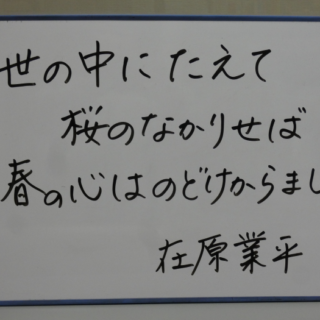 世の中にたえて
桜のなかりせば
春の心はのどけからまし
在原業平